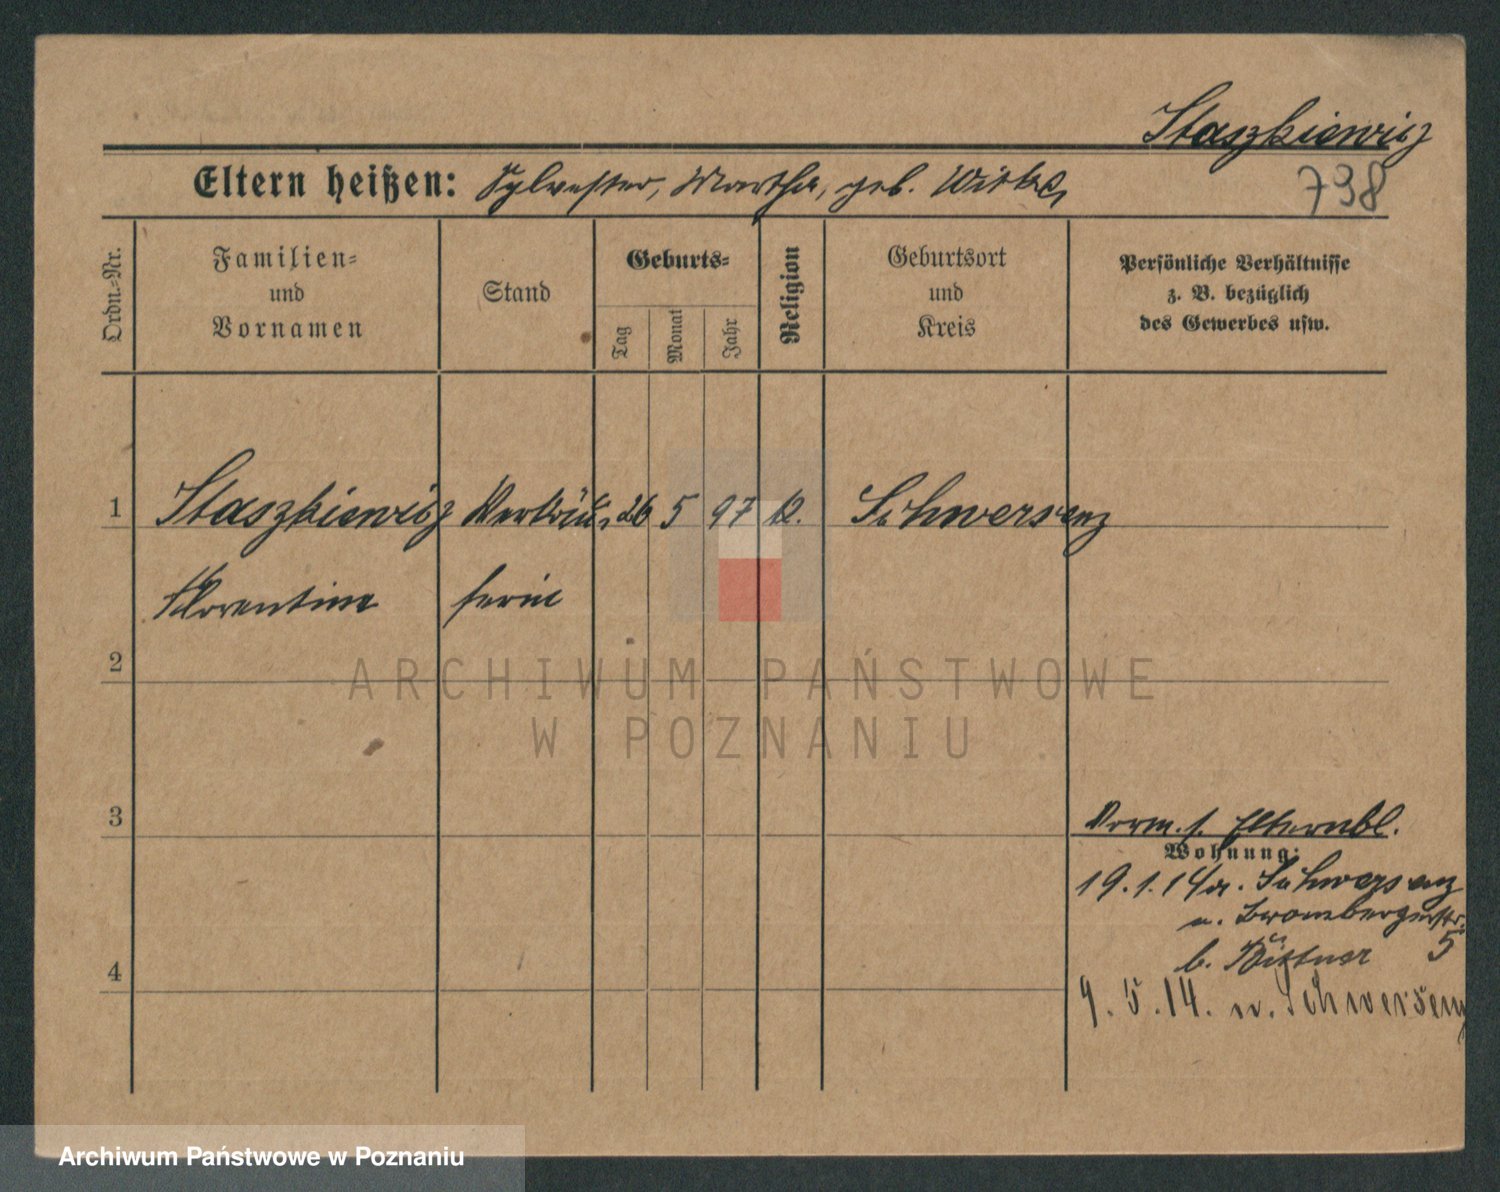 Staszkiewicz
798
Eltern heißen: Sylvester, Martha, geb.
Ordn.-Nr.
Familien-
und
Vornamen
Stand
Geburts-
Tag
Monat
Jahr
Religion
Geburtsort
und
Kreis
Persönliche Verhältnisse
z. B. bezüglich
des Gewerbes usw.
1 Staszkiewicz Verkäu- 26 5 97 k. Schwersenz
Florentine ferin
2
ARCHIWUM PAŃSTWOWE
W POZNANIU
3
Vorm. s. Elternbl.
Wohnung:
19.1.14 v. Schwersenz
n. Brombergerstr.
b. Bittner 5
4
9.5.14. n. Schwersenz
Archiwum Państwowe w Poznaniu